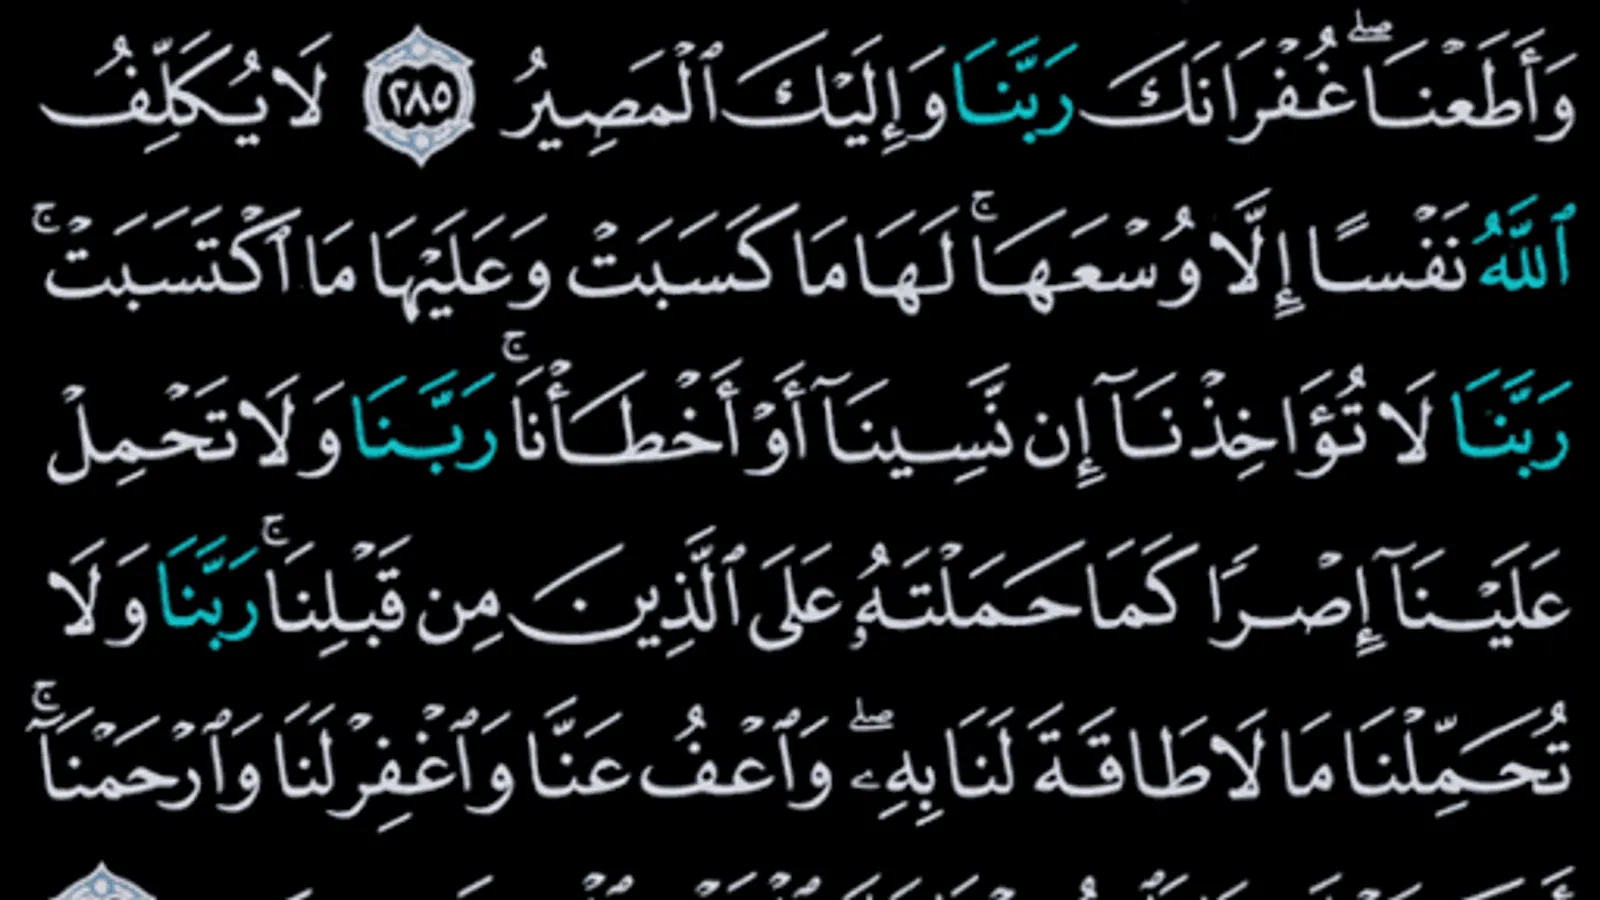 وَأَطَعْنَا ۖ غُفْرَانَكَ رَبَّنَا وَإِلَيْكَ ٱلْمَصِيرُ ٢٨٥ لَا يُكَلِّفُ
ٱللَّهُ نَفْسًا إِلَّا وُسْعَهَا ۚ لَهَا مَا كَسَبَتْ وَعَلَيْهَا مَا ٱكْتَسَبَتْ ۚ
رَبَّنَا لَا تُؤَاخِذْنَآ إِن نَّسِينَآ أَوْ أَخْطَأْنَا ۚ رَبَّنَا وَلَا تَحْمِلْ
عَلَيْنَآ إِصْرًا كَمَا حَمَلْتَهُۥ عَلَى ٱلَّذِينَ مِن قَبْلِنَا ۚ رَبَّنَا وَلَا
تُحَمِّلْنَا مَا لَا طَاقَةَ لَنَا بِهِۦ ۖ وَٱعْفُ عَنَّا وَٱغْفِرْ لَنَا وَٱرْحَمْنَآ ۚ